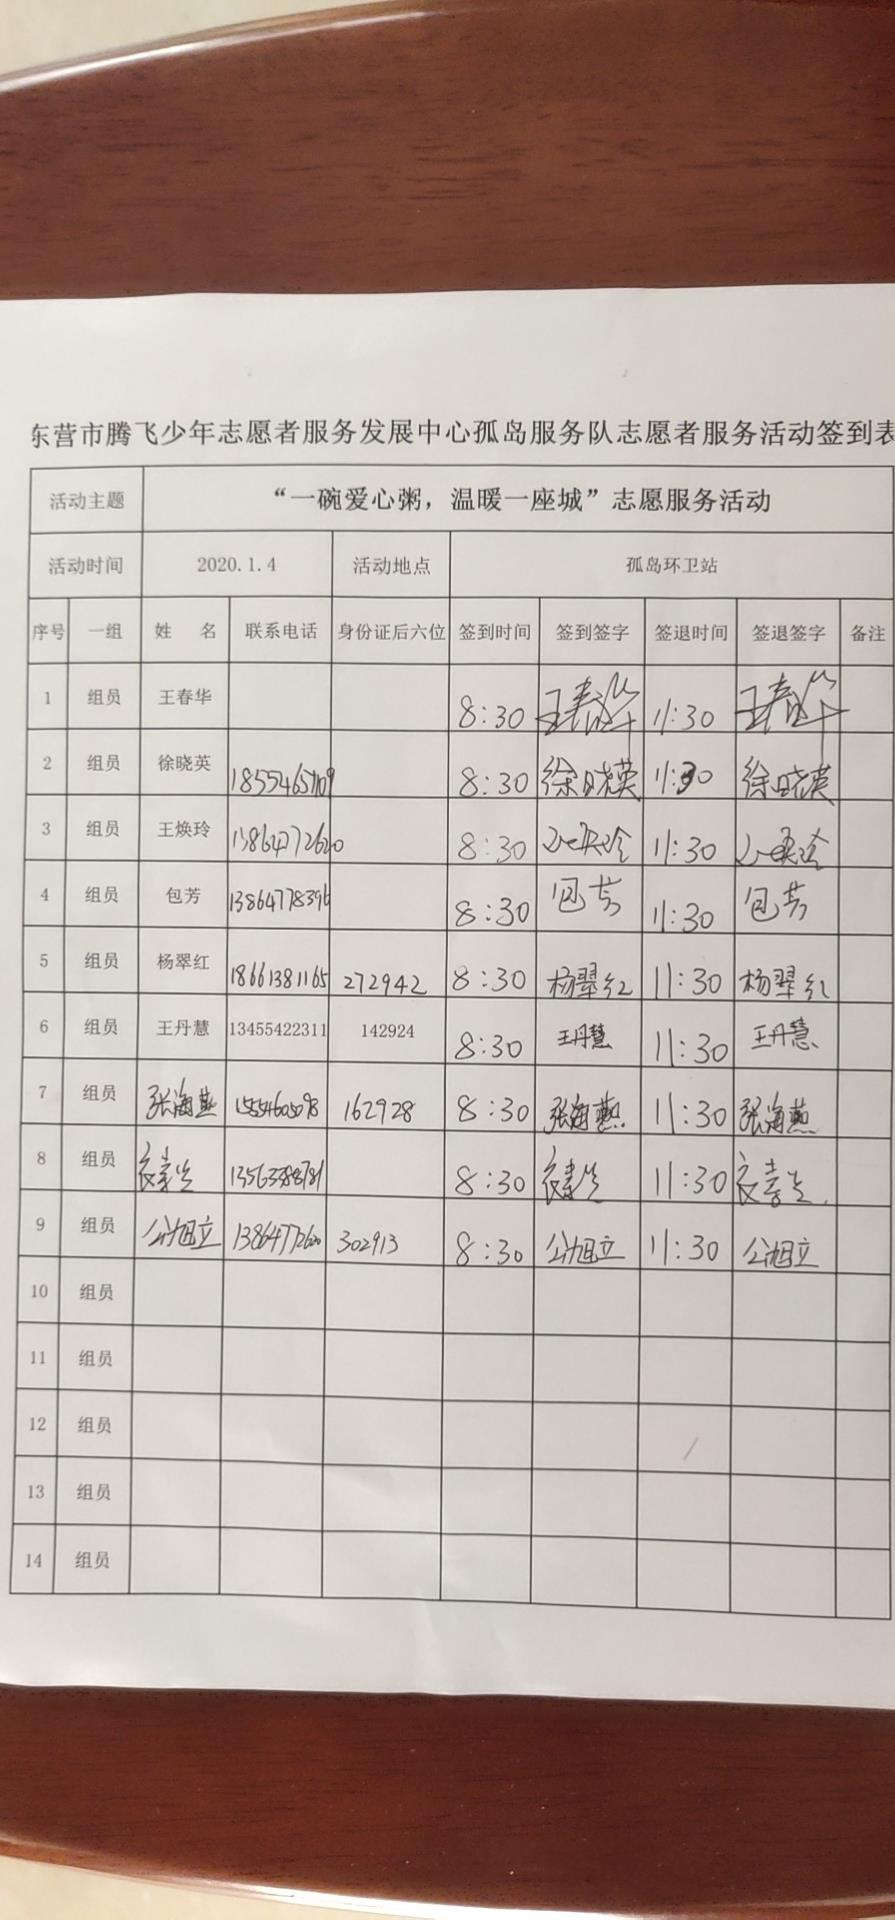 东营市腾飞少年志愿者服务发展中心孤岛服务队志愿者服务活动签到表
活动主题 “一碗爱心粥，温暖一座城”志愿服务活动
活动时间 2020.1.4 活动地点 孤岛环卫站
序号 一组 姓 名 联系电话 身份证后六位 签到时间 签到签字 签退时间 签退签字 备注
1 组员 王春华 8:30 王春华 11:30 王春华
2 组员 徐晓英 8:30 徐晓英 11:30 徐晓英
3 组员 王焕玲 13864772620 8:30 11:30
4 组员 包芳 13864778396 8:30 包芳 11:30 包芳
5 组员 杨翠红 18661381165 272942 8:30 杨翠红 11:30 杨翠红
6 组员 王丹慧 13455422311 142924 8:30 王丹慧 11:30 王丹慧
7 组员 张海燕 162928 8:30 张海燕 11:30 张海燕
8 组员 8:30 11:30
9 组员 公旭立 13864772620 302913 8:30 公旭立 11:30 公旭立
10 组员
11 组员
12 组员
13 组员
14 组员